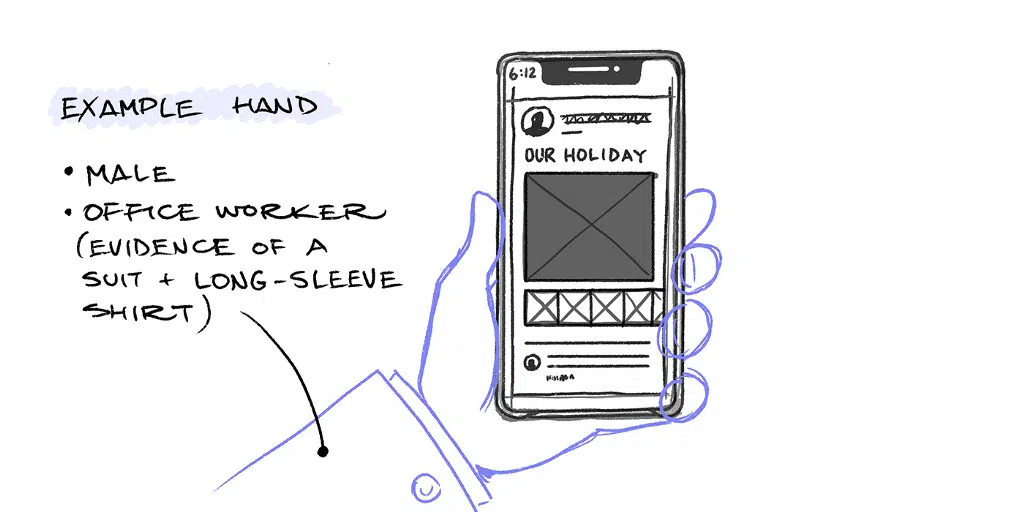 EXAMPLE HAND
• MALE
• OFFICE WORKER
(EVIDENCE OF A
SUIT + LONG-SLEEVE
SHIRT)
6:12
OUR HOLIDAY